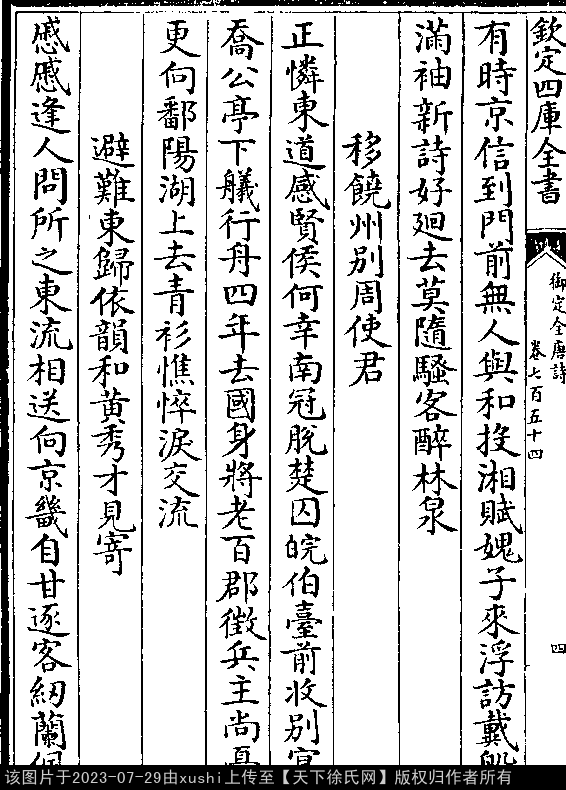 欽定四庫全書
御定全唐詩
卷七百五十四
四
有時京信到門前無人與和投湘賦媿子來浮訪戴
滿袖新詩好廻去莫隨騷客醉林泉
移饒州别周使君
正憐東道感賢侯何幸南冠脫楚囚皖伯臺前收别
喬公亭下艤行舟四年去國身將老百郡徵兵主尚
更向鄱陽湖上去青衫憔悴淚交流
避難東歸依韻和黄秀才見寄
慼慼逢人問所之東流相送向京畿自甘逐客紉蘭
该图片于2023-07-29由xushi上传至【天下徐氏网】版权归作者所有